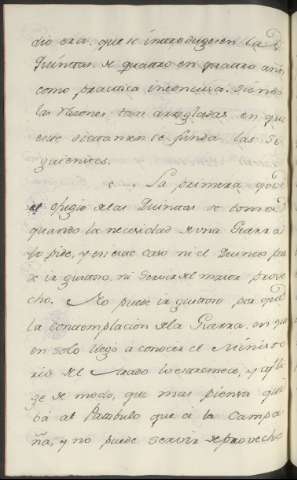 dio era, que se introdugesen las
Quintas de quatro en quatro años
como practica inconcusa. Siendo
las razones tan arregladas en que
este dictamen se funda, las Si-
guientes.
La primera, qe.
el efugio de las Quintas se toma
quando la necesidad de una Guerra
lo pide, y en ese caso ni el Quinto pue
de ir gustoso, ni servir de maior prove
cho. No puede ir gustoso por que
la contemplacion de la Guerra, en que
en solo llegó a conocer el Ministe-
rio del Arado lo estremece, y afli
ge de modo, que mas piensa que
vá al Patibulo que á la Campa
ña, y no puede servir de provecho